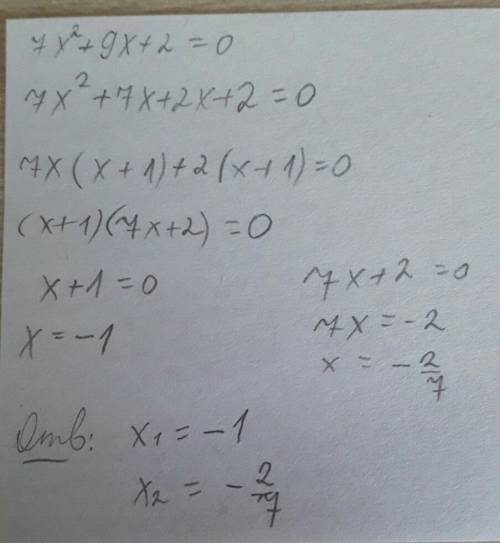 7x²+9x+2=0
7x²+7x+2x+2=0
7x(x+1)+2(x+1)=0
(x+1)(7x+2)=0
x+1=0 7x+2=0
x=-1 7x=-2
x=-2/7
Отв: x₁=-1
x₂=-2/7